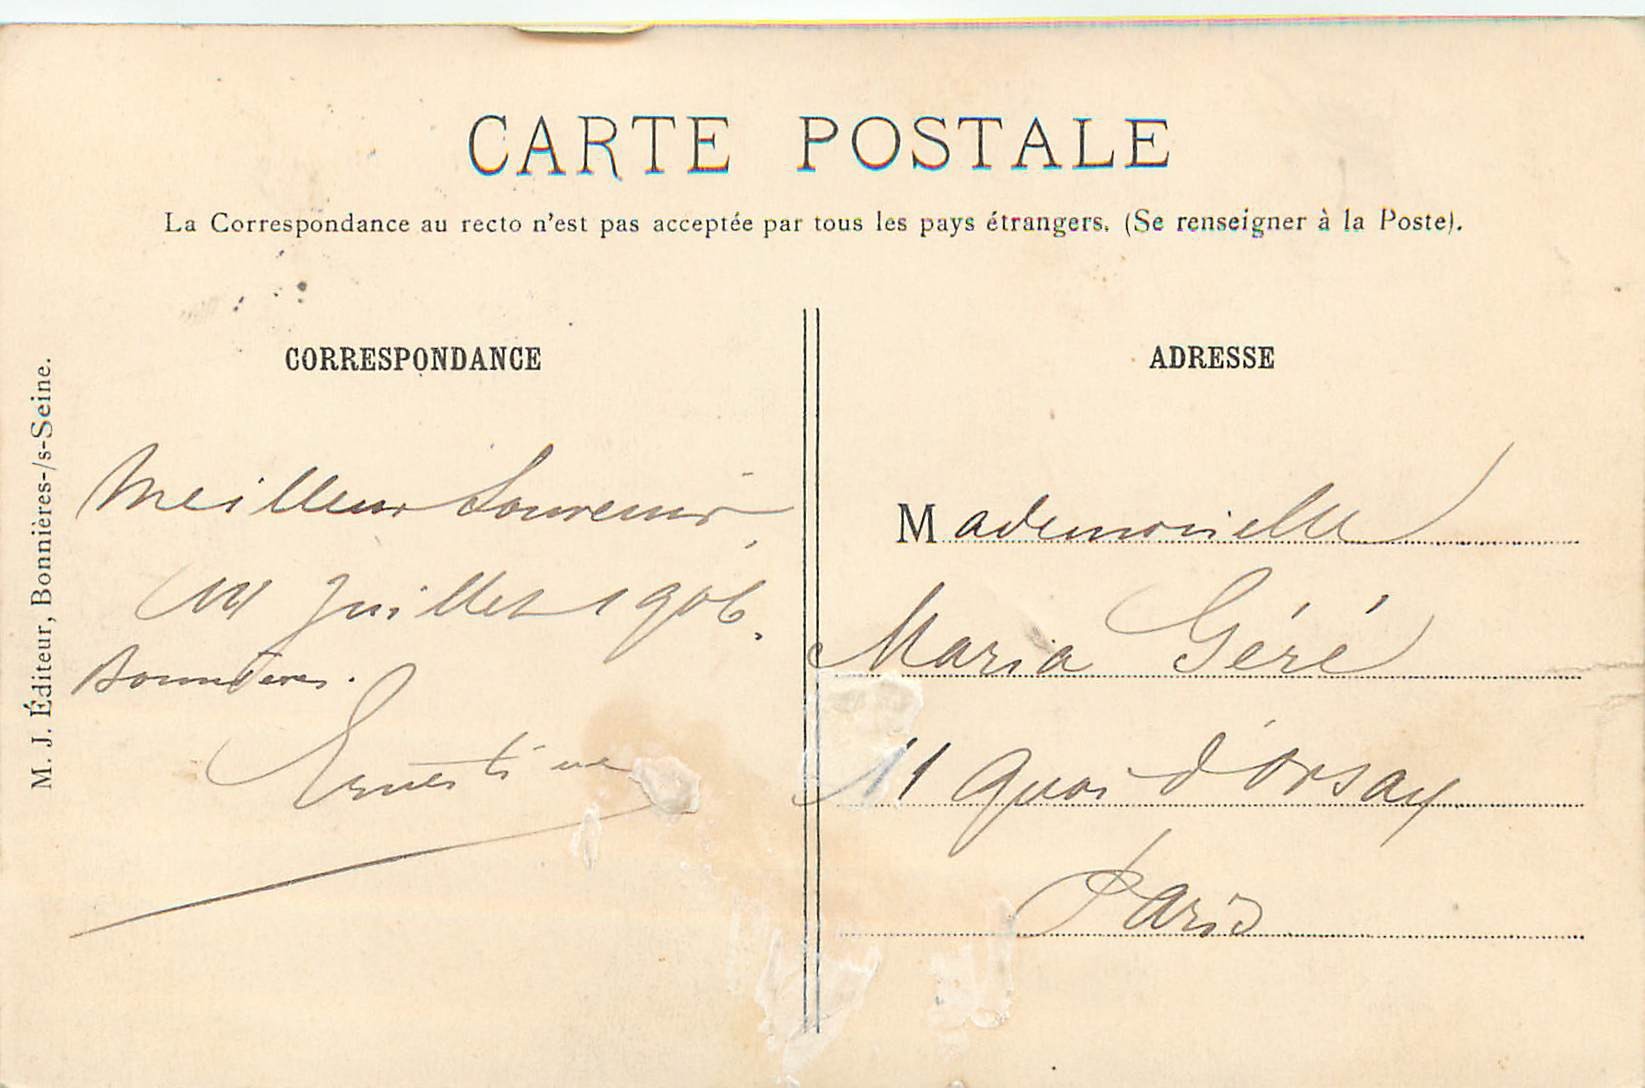 CARTE POSTALE
La Correspondance au recto n'est pas acceptée par tous les pays étrangers. (Se renseigner à la Poste).
CORRESPONDANCE
Meilleur Souvenir,
14 Juillet 1906.
Bonnières.
Ernestine
ADRESSE
Mademoiselle
Maria Géré
11 Quai d'Orsay
Paris
M. J. Éditeur, Bonnières-/s-Seine.